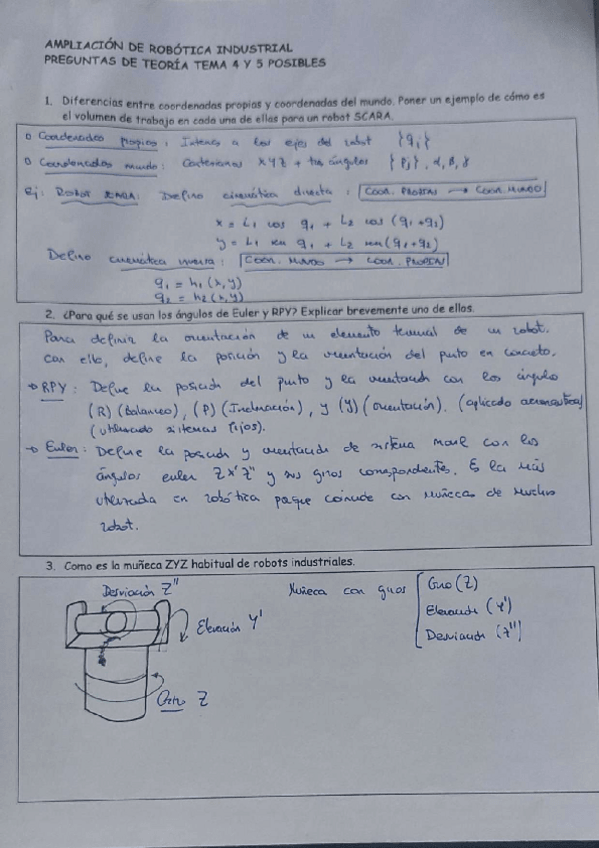 AMPLIACIÓN DE ROBÓTICA INDUSTRIAL
PREGUNTAS DE TEORÍA TEMA 4 Y 5 POSIBLES
1. Diferencias entre coordenadas propias y coordenadas del mundo. Poner un ejemplo de cómo es
el volumen de trabajo en cada una de ellas para un robot SCARA.
Coordenadas propias: Internas a los ejes del robot {qi}
Coordenadas mundo: Cartesianas XYZ + tres ángulos {Pj}, α, β, γ
Ej: ROBOT SCARA: Defino cinemática directa: COOR. PROPIAS → COOR. MUNDO
x = L1 cos q1 + L2 cos (q1+q2)
y = L1 sen q1 + L2 sen (q1+q2)
Defino cinemática inversa: COOR. MUNDO → COOR. PROPIA
q1 = h1 (x,y)
q2 = h2 (x,y)
2. ¿Para qué se usan los ángulos de Euler y RPY? Explicar brevemente uno de ellos.
Para definir la orientación de un elemento terminal de un robot.
Con ello, define la posición y la orientación del punto en concreto.
→ RPY: Define la posición del punto y la orientación con los ángulo
(R) (Balanceo), (P) (Inclinación), y (Y) (orientación). (aplicado
(utilizado sistemas fijos).
→ Euler: Define la posición y orientación de sistema movil con los
ángulos euler ZY'Z'' y sus giros correspondientes. Es la más
utilizada en robótica porque coincide con muñecas de mucho
robot.
3. Como es la muñeca ZYZ habitual de robots industriales.
Desviación Z''
Muñeca con giros
Giro (Z)
Elevación (Y')
Desviación (Z'')
Elevación Y'
Giro Z